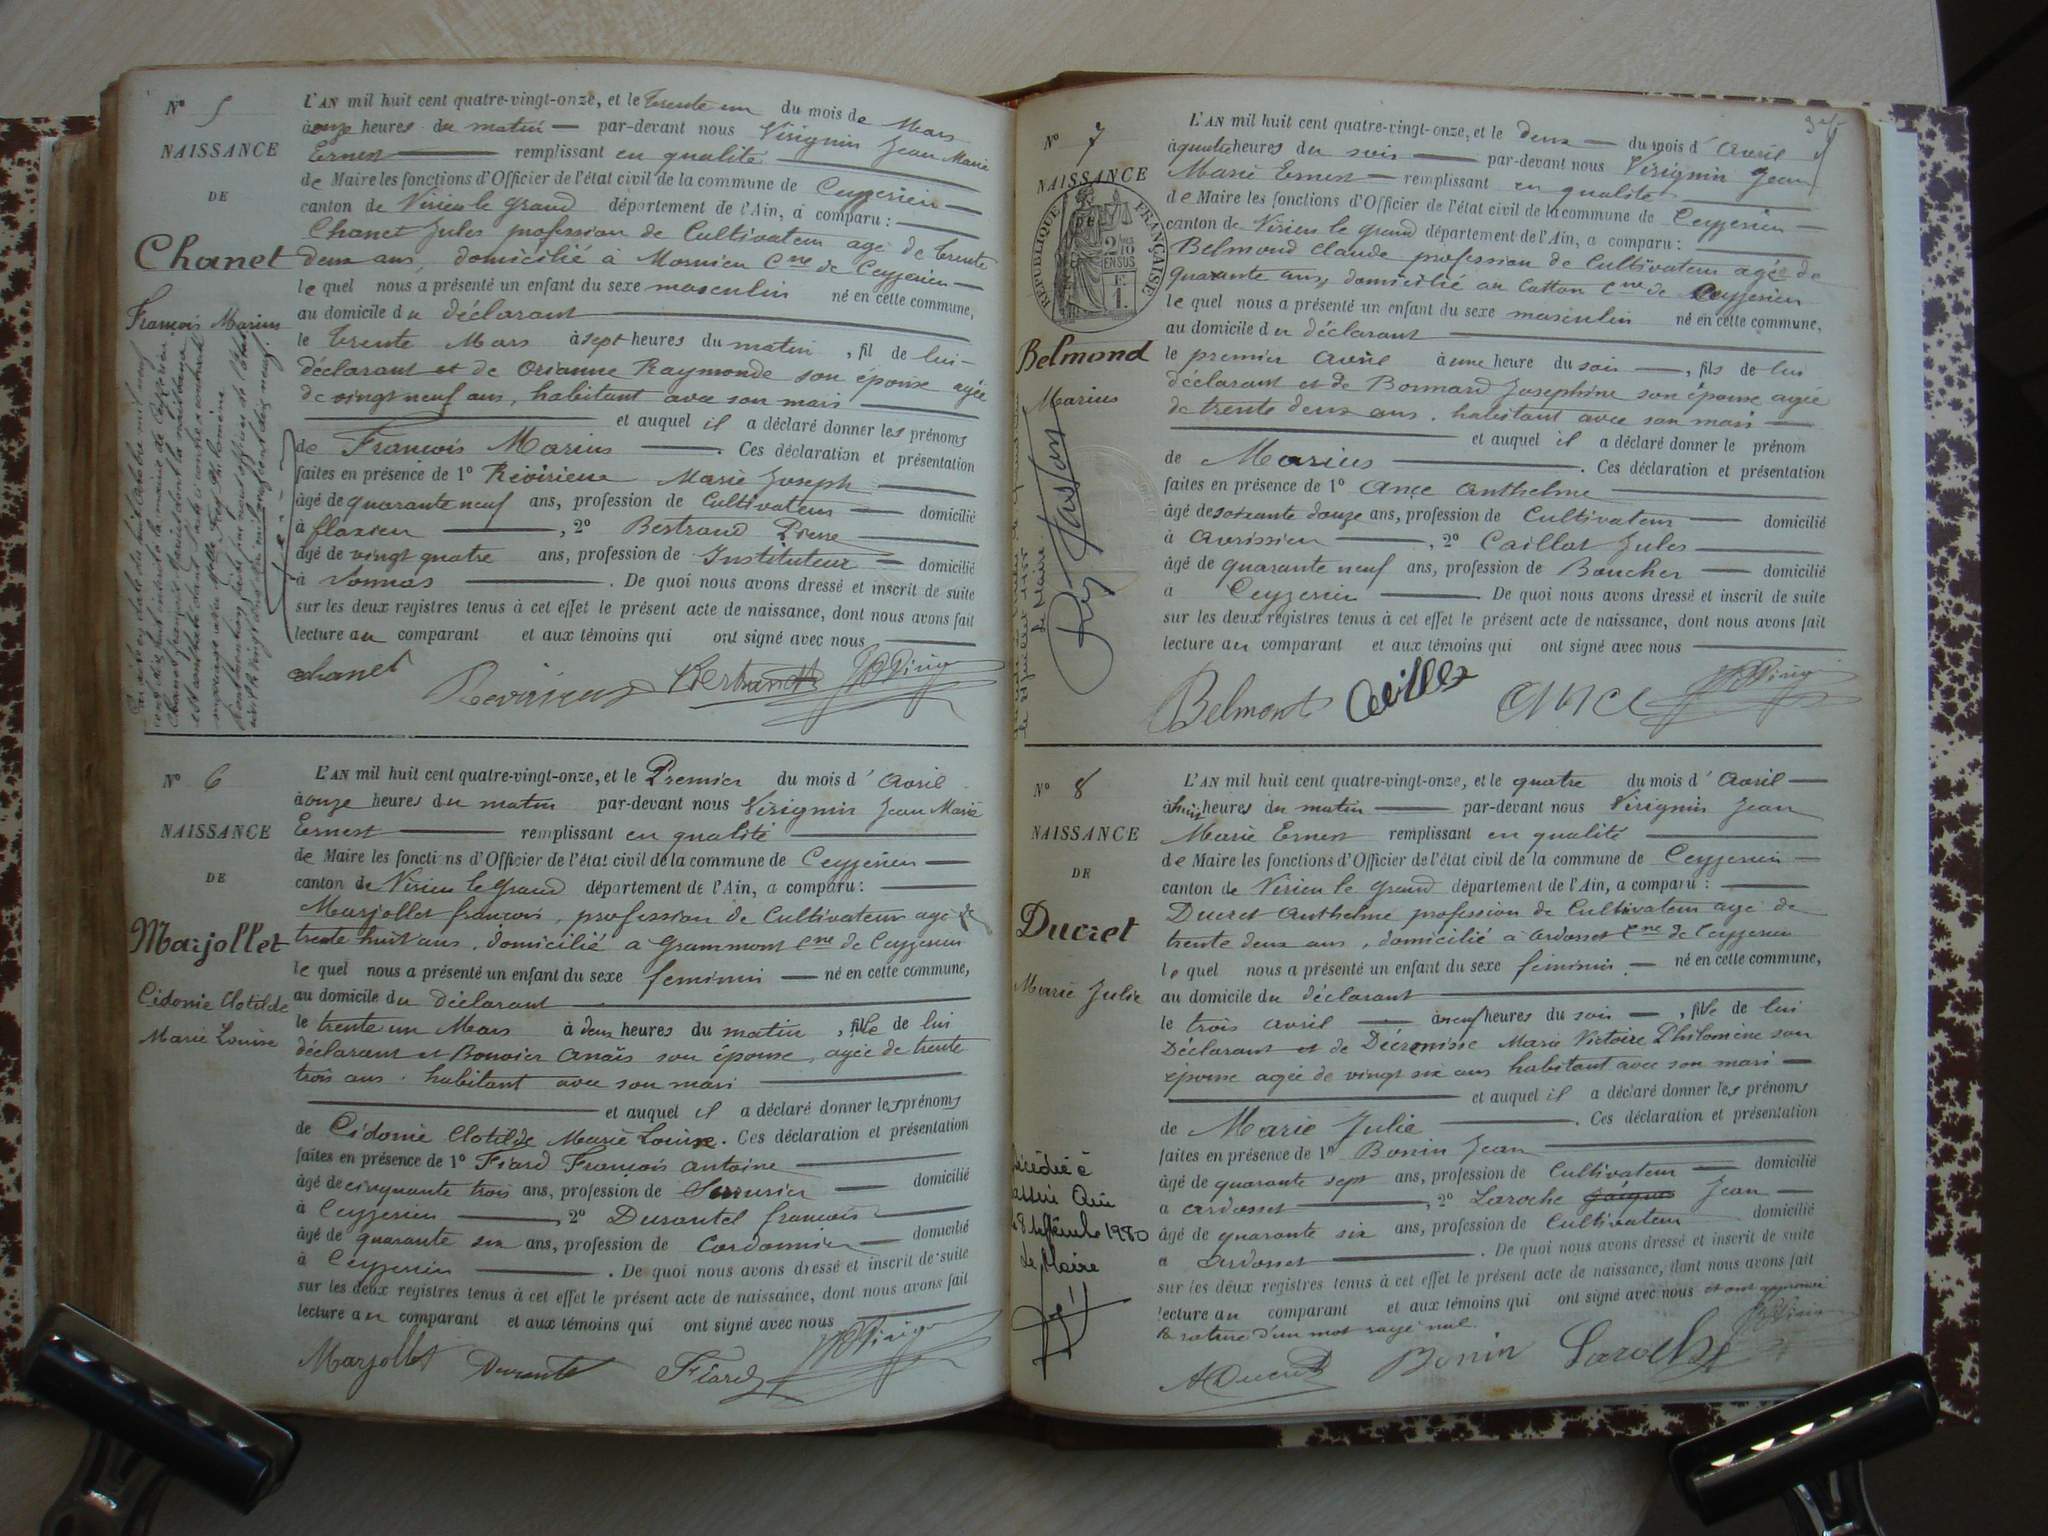 N° 5
NAISSANCE
DE
Chanet
François Marius
L'AN mil huit cent quatre-vingt-onze, et le trente un du mois de Mars
à onze heures du matin — par-devant nous Virignin Jean Marie
Ernest — remplissant en qualité
de Maire les fonctions d'Officier de l'état civil de la commune de Ceyzerieu —
canton de Virieu le grand département de l'Ain, a comparu :
Chanet Jules profession de Cultivateur agé de trente
deux ans, domicilié à Mornieu Cne de Ceyzerieu —
le quel nous a présenté un enfant du sexe masculin né en cette commune,
au domicile du déclarant
le trente Mars à sept heures du matin, fil de lui
déclarant et de Orianne Raymonde son épouse agée
de vingt neuf ans, habitant avec son mari
et auquel il a déclaré donner les prénoms
de François Marius — Ces déclaration et présentation
faites en présence de 1° Marie Joseph
âgé de quarante neuf ans, profession de Cultivateur — domicilié
à flaxieu —, 2° Bertrand Pierre
âgé de vingt quatre ans, profession de Instituteur — domicilié
à Vonnas — . De quoi nous avons dressé et inscrit de suite
sur les deux registres tenus à cet effet le présent acte de naissance, dont nous avons fait
lecture au comparant et aux témoins qui ont signé avec nous
chanet
N° 6
NAISSANCE
DE
Marjollet
Cidonie Clotilde
Marie Louise
L'AN mil huit cent quatre-vingt-onze, et le Premier du mois d' Avril
à onze heures du matin par-devant nous Virignin Jean Marie
Ernest — remplissant en qualité
de Maire les fonctions d'Officier de l'état civil de la commune de Ceyzerieu —
canton de Virieu le Grand département de l'Ain, a comparu :
Marjollet françois, profession de Cultivateur agé de
trente huit ans, domicilié a Grammont Cne de Ceyzerieu
le quel nous a présenté un enfant du sexe feminin — né en cette commune,
au domicile du Déclarant
le trente un Mars à deux heures du matin, fille de lui
déclarant et Bouvier Anaïs son épouse, agée de trente
trois ans, habitant avec son mari
et auquel il a déclaré donner les prénoms
de Cidonie Clotilde Marie Louise. Ces déclaration et présentation
faites en présence de 1° Fiard François Antoine
âgé de cinquante trois ans, profession de Serrurier — domicilié
à Ceyzerieu —, 2° Durantel françois
âgé de quarante six ans, profession de Cordonnier — domicilié
à Ceyzerieu — . De quoi nous avons dressé et inscrit de suite
sur les deux registres tenus à cet effet le présent acte de naissance, dont nous avons fait
lecture au comparant et aux témoins qui ont signé avec nous
Marjollet Fiard
N° 7
NAISSANCE
DE
RÉPUBLIQUE FRANÇAISE
Belmond
Marius
L'AN mil huit cent quatre-vingt-onze, et le deux — du mois d' Avril
à quatre heures du soir — par-devant nous Virignin Jean
Marie Ernest — remplissant en qualité
de Maire les fonctions d'Officier de l'état civil de la commune de Ceyzerieu —
canton de Virieu le grand département de l'Ain, a comparu :
Belmond Claude profession de Cultivateur agée de
quarante ans, domicilié au Catton Cne de Ceyzerieu
le quel nous a présenté un enfant du sexe masculin né en cette commune,
au domicile du déclarant
le premier Avril à une heure du soir —, fils de lui
déclarant et de Bonnard Josephine son épouse agée
de trente deux ans, habitant avec son mari —
et auquel il a déclaré donner le prénom
de Marius — . Ces déclaration et présentation
faites en présence de 1° Ance Anthelme
âgé de soixante douze ans, profession de Cultivateur — domicilié
à Avrissieu —, 2° Caillot Jules
âgé de quarante neuf ans, profession de Boucher — domicilié
à Ceyzerieu — De quoi nous avons dressé et inscrit de suite
sur les deux registres tenus à cet effet le présent acte de naissance, dont nous avons fait
lecture au comparant et aux témoins qui ont signé avec nous
Belmont Ance
N° 8
NAISSANCE
DE
Ducret
Marie Julie
Décédée à
8 septembre 1980
Le Maire
L'AN mil huit cent quatre-vingt-onze, et le quatre du mois d' Avril —
à huit heures du matin — par-devant nous Virignin Jean
Marie Ernest remplissant en qualité
de Maire les fonctions d'Officier de l'état civil de la commune de Ceyzerieu —
canton de Virieu le Grand département de l'Ain, a comparu :
Ducret Anthelme profession de Cultivateur agé de
trente deux ans, domicilié à Ardosset Cne de Ceyzerieu
le quel nous a présenté un enfant du sexe féminin — né en cette commune,
au domicile du déclarant
le trois Avril — à neuf heures du soir —, fille de lui
Déclarant et de Décrenisse Marie Victoire Philomène son
épouse agée de vingt six ans habitant avec son mari —
et auquel il a déclaré donner les prénoms
de Marie Julie — . Ces déclaration et présentation
faites en présence de 1° Bonin Jean
âgé de quarante sept ans, profession de Cultivateur — domicilié
a Ardosset —, 2° Laroche Jacques Jean —
âgé de quarante six ans, profession de Cultivateur domicilié
a Ardosset — . De quoi nous avons dressé et inscrit de suite
sur les deux registres tenus à cet effet le présent acte de naissance, dont nous avons fait
lecture au comparant et aux témoins qui ont signé avec nous et ont approuvé
la rature d'un mot rayé nul.
ADucret Bonin Laroche